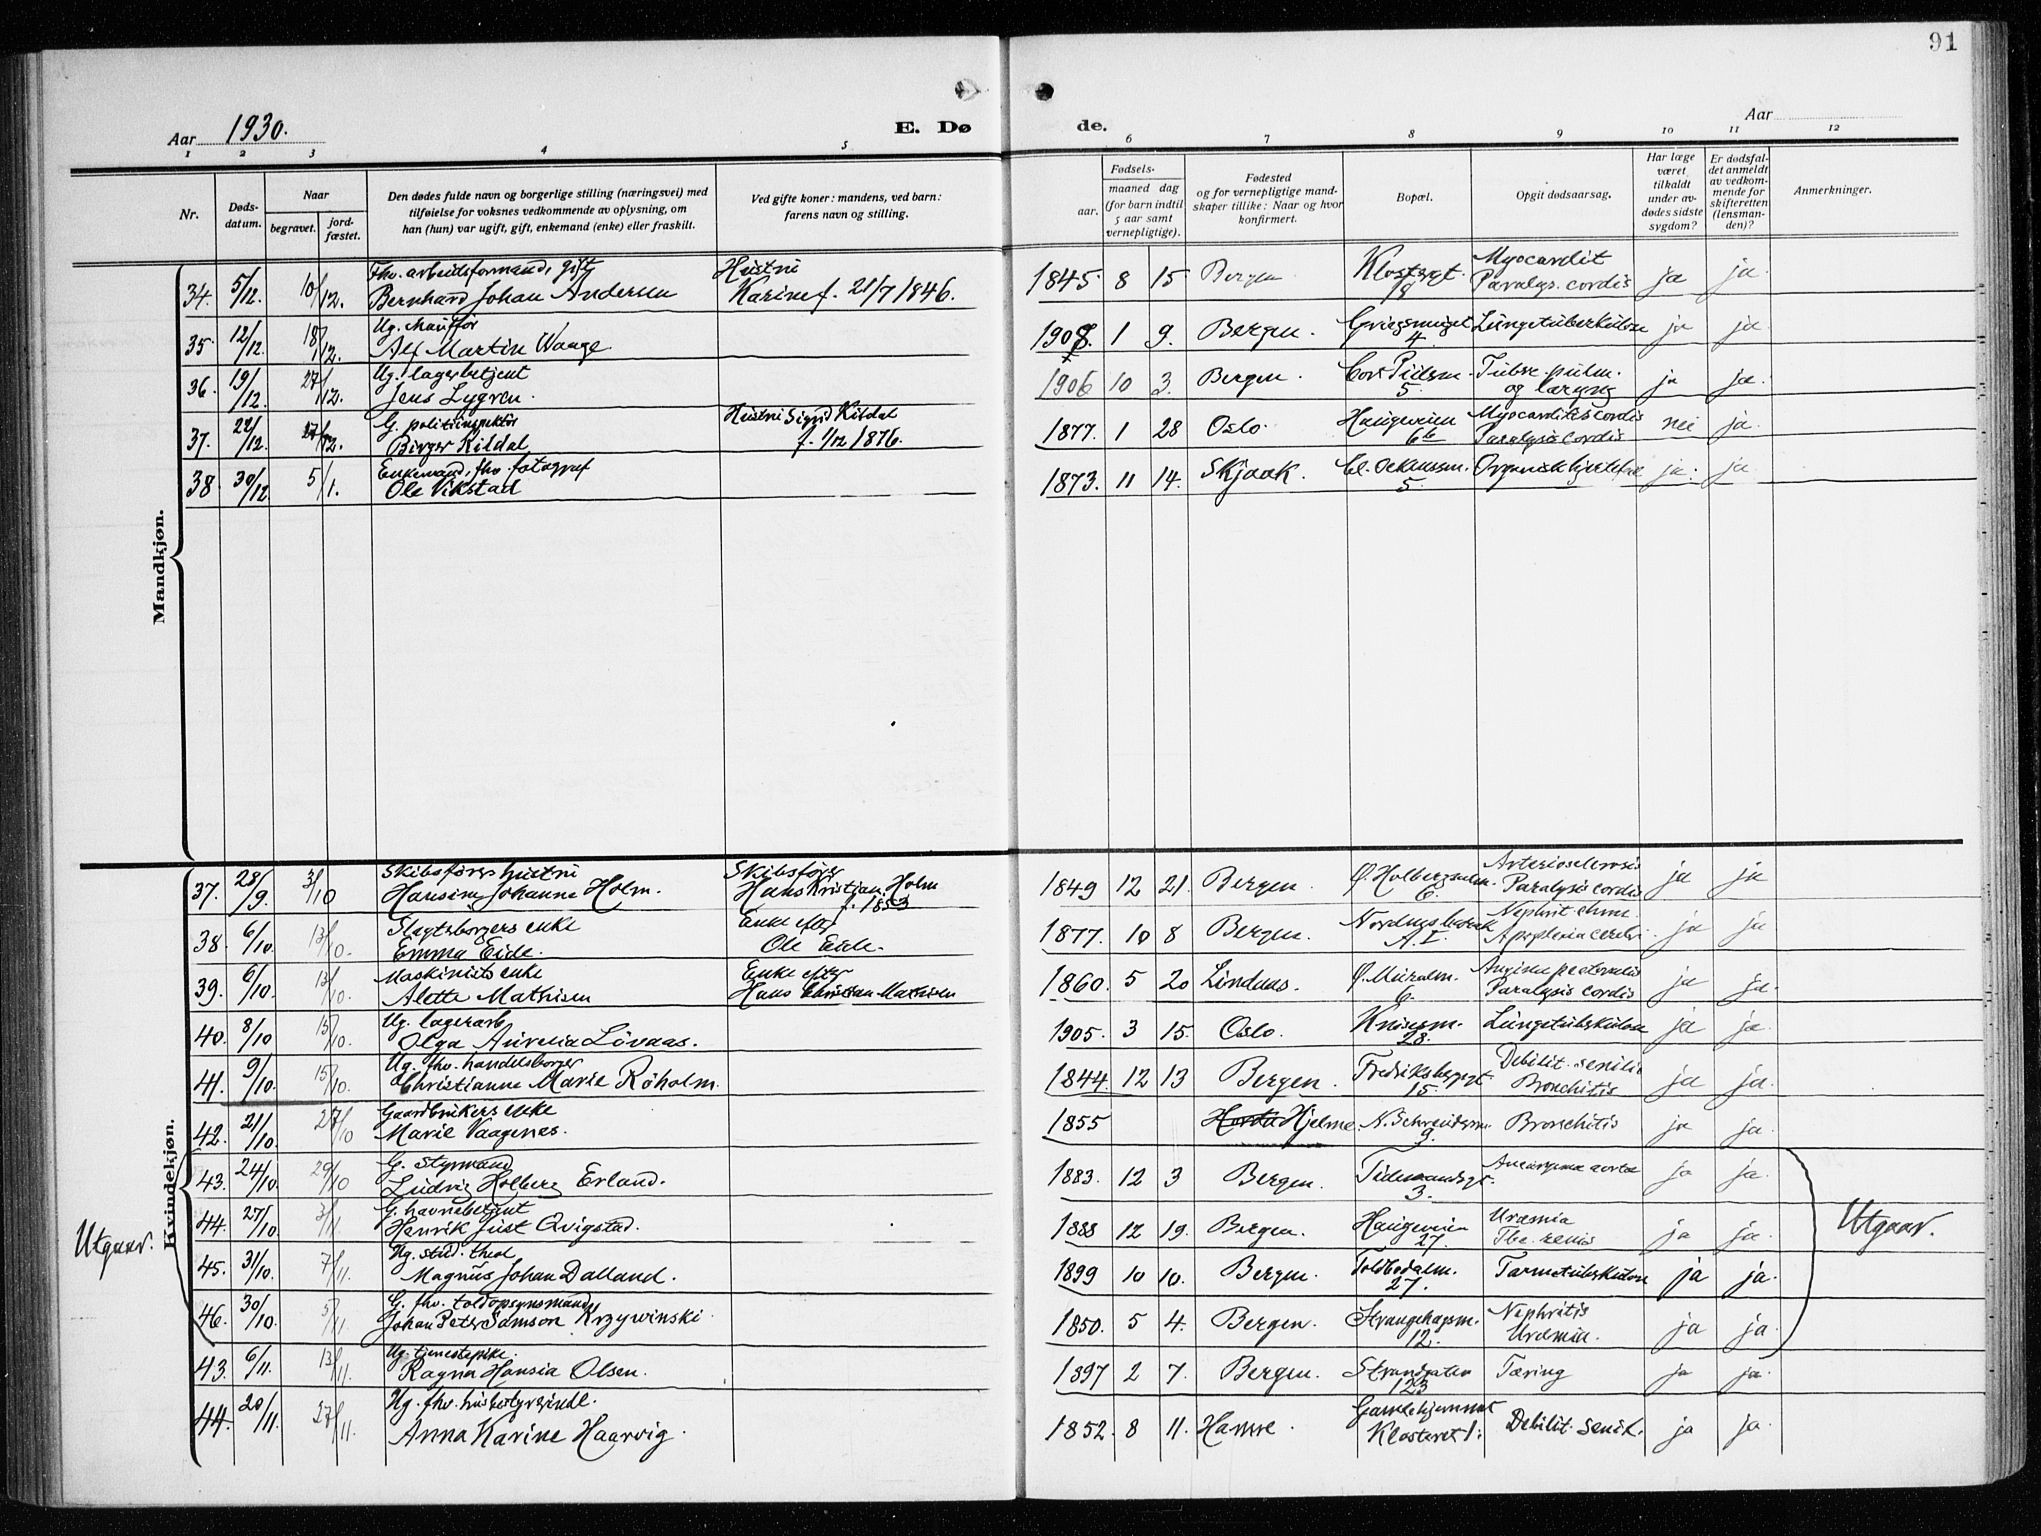 91
Aar 1930.
E. Dø
de.
Aar
1 2 3 4 5 6 7 8 9 10 11 12
Nr.
Døds-
datum.
Naar
begravet.
jord-
fæstet.
Den dødes fulde navn og borgerlige stilling (næringsvei) med
tilføielse for voksnes vedkommende av oplysning, om
han (hun) var ugift, gift, enkemand (enke) eller fraskilt.
Ved gifte koner: mandens, ved barn:
farens navn og stilling.
Fødsels-
aar.
maaned dag
(for barn indtil
5 aar samt
vernepligtige).
Fødested
og for vernepligtige mand-
skaper tillike: Naar og hvor
konfirmert.
Bopæl.
Opgit dødsaarsag.
Har læge
været
tilkaldt
under av-
dødes sidste
sygdom?
Er dødsfal-
det anmeldt
av vedkom-
mende for
skifteretten
(lensman-
den)?
Anmerkninger.
Mandkjøn.
Fhv. arbeidsformand, gift Hustru Myocardit
34. 5/12. 10/12. Bernhard Johan Andersen Karine f. 21/7 1846. 1845. 8 15 Bergen Klostergt. 18 Paralys. cordis ja ja.
Ug. Mauffør
35. 12/12. 18/12. Alf Martin Waage. 1908. 1 9. Bergen. 4. Lungetuberkulose ja ja
Ug. lagerbetjent
36. 19/12. 27/12. Jens Lygren. 1906 10 3. Bergen. 5. Tuberc. pulm. og laryng ja ja.
G. politiinspektör Hustru Sigrid Kildal Myocarditis cordis
37. 22/12. 27/12. Birger Kildal f. 1/12 1876. 1877. 1 28 Oslo. Haugeveien 6b Paralysis cordis nei ja.
Enkemand, fhv. fotograf
38 30/12 5/1. Ole Vikstad 1873. 11 14. Skjaak. 5. Organisk hjertefeil ja. ja
Kvindekjøn.
Skibsförers hustru Skibsförer Arteriosclerosis
37. 28/9. 3/10 Hansine Johanne Holm. Hans Kristian Holm f. 1853 1849 12 21. Bergen. Ø. Holbergsalm. 6. Paralysis cordis ja ja
Slagtsborgers enke Enke efter Nephrit chron.
38. 6/10. 13/10. Emma Eide. Ole Eide. 1877. 10 8 Bergen. Nordnesbakk A.I. Apoplexia cerebri. ja ja
Maskinists enke Enke efter Angina pectoralis
39. 6/10. 13/10. Alette Mathisen Hans Christian Mathisen 1860. 5 20 Lindaas. Ø. Muralm. 6. Paralysis cordis ja ja.
Ug. lagerarb
40. 8/10 15/10. Olga Aurelia Lövaas. 1905. 3 15. Oslo. Knösesm. 28. Lungetuberkulose ja ja.
Ug. fhv. handelsborger Debilit. senilis
41. 9/10. 15/10. Christianne Marie Röholm. 1844. 12 13 Bergen. Fredriksberggt 15. Bronchitis ja ja.
Gaardbrukers enke
42. 21/10. 27/10 Marie Vaagenes. 1855 Horda Hjelme. N. Schreudersm. 9. Bronchitis ja ja.
G. Styrmand
43. 24/10. 29/10 Ludvig Holberg Erland. 1883. 12 3 Bergen. Tidemandsgt. 3. Aneurysma aortae ja ja.
G. havnebetjent Uræmia
44. 27/10. 3/11. Henrik Just Qvigstad. 1888 12 19. Bergen. Haugeveien 27. Tbc. renis ja ja.
Ug. stud. theol
45. 31/10. 7/11. Magnus Johan Dalland. 1899 10 10. Bergen. Toldbodalm. 27. Tarmtuberkulose ja ja.
G. fhv. toldopsynsmand Nephritis
46. 30/10. 5/11. Johan Peter Samson Krzywinski 1850. 5 4. Bergen. Strangehagen. 12. Uræmia. ja ja.
Utgaar. Utgaar.
Ug. tjenestepike.
43. 6/11. 13/11. Ragna Hansia Olsen. 1897 2 7. Bergen. Strandgaten 123 Tæring ja ja.
Ug. fhv. husbestyrerinde. Gamlehjemmet
44. 20/11. 27/11. Anna Karine Haarvig. 1852. 8 11. Hamre. Klosteret 1. Debilit. senil. ja ja.